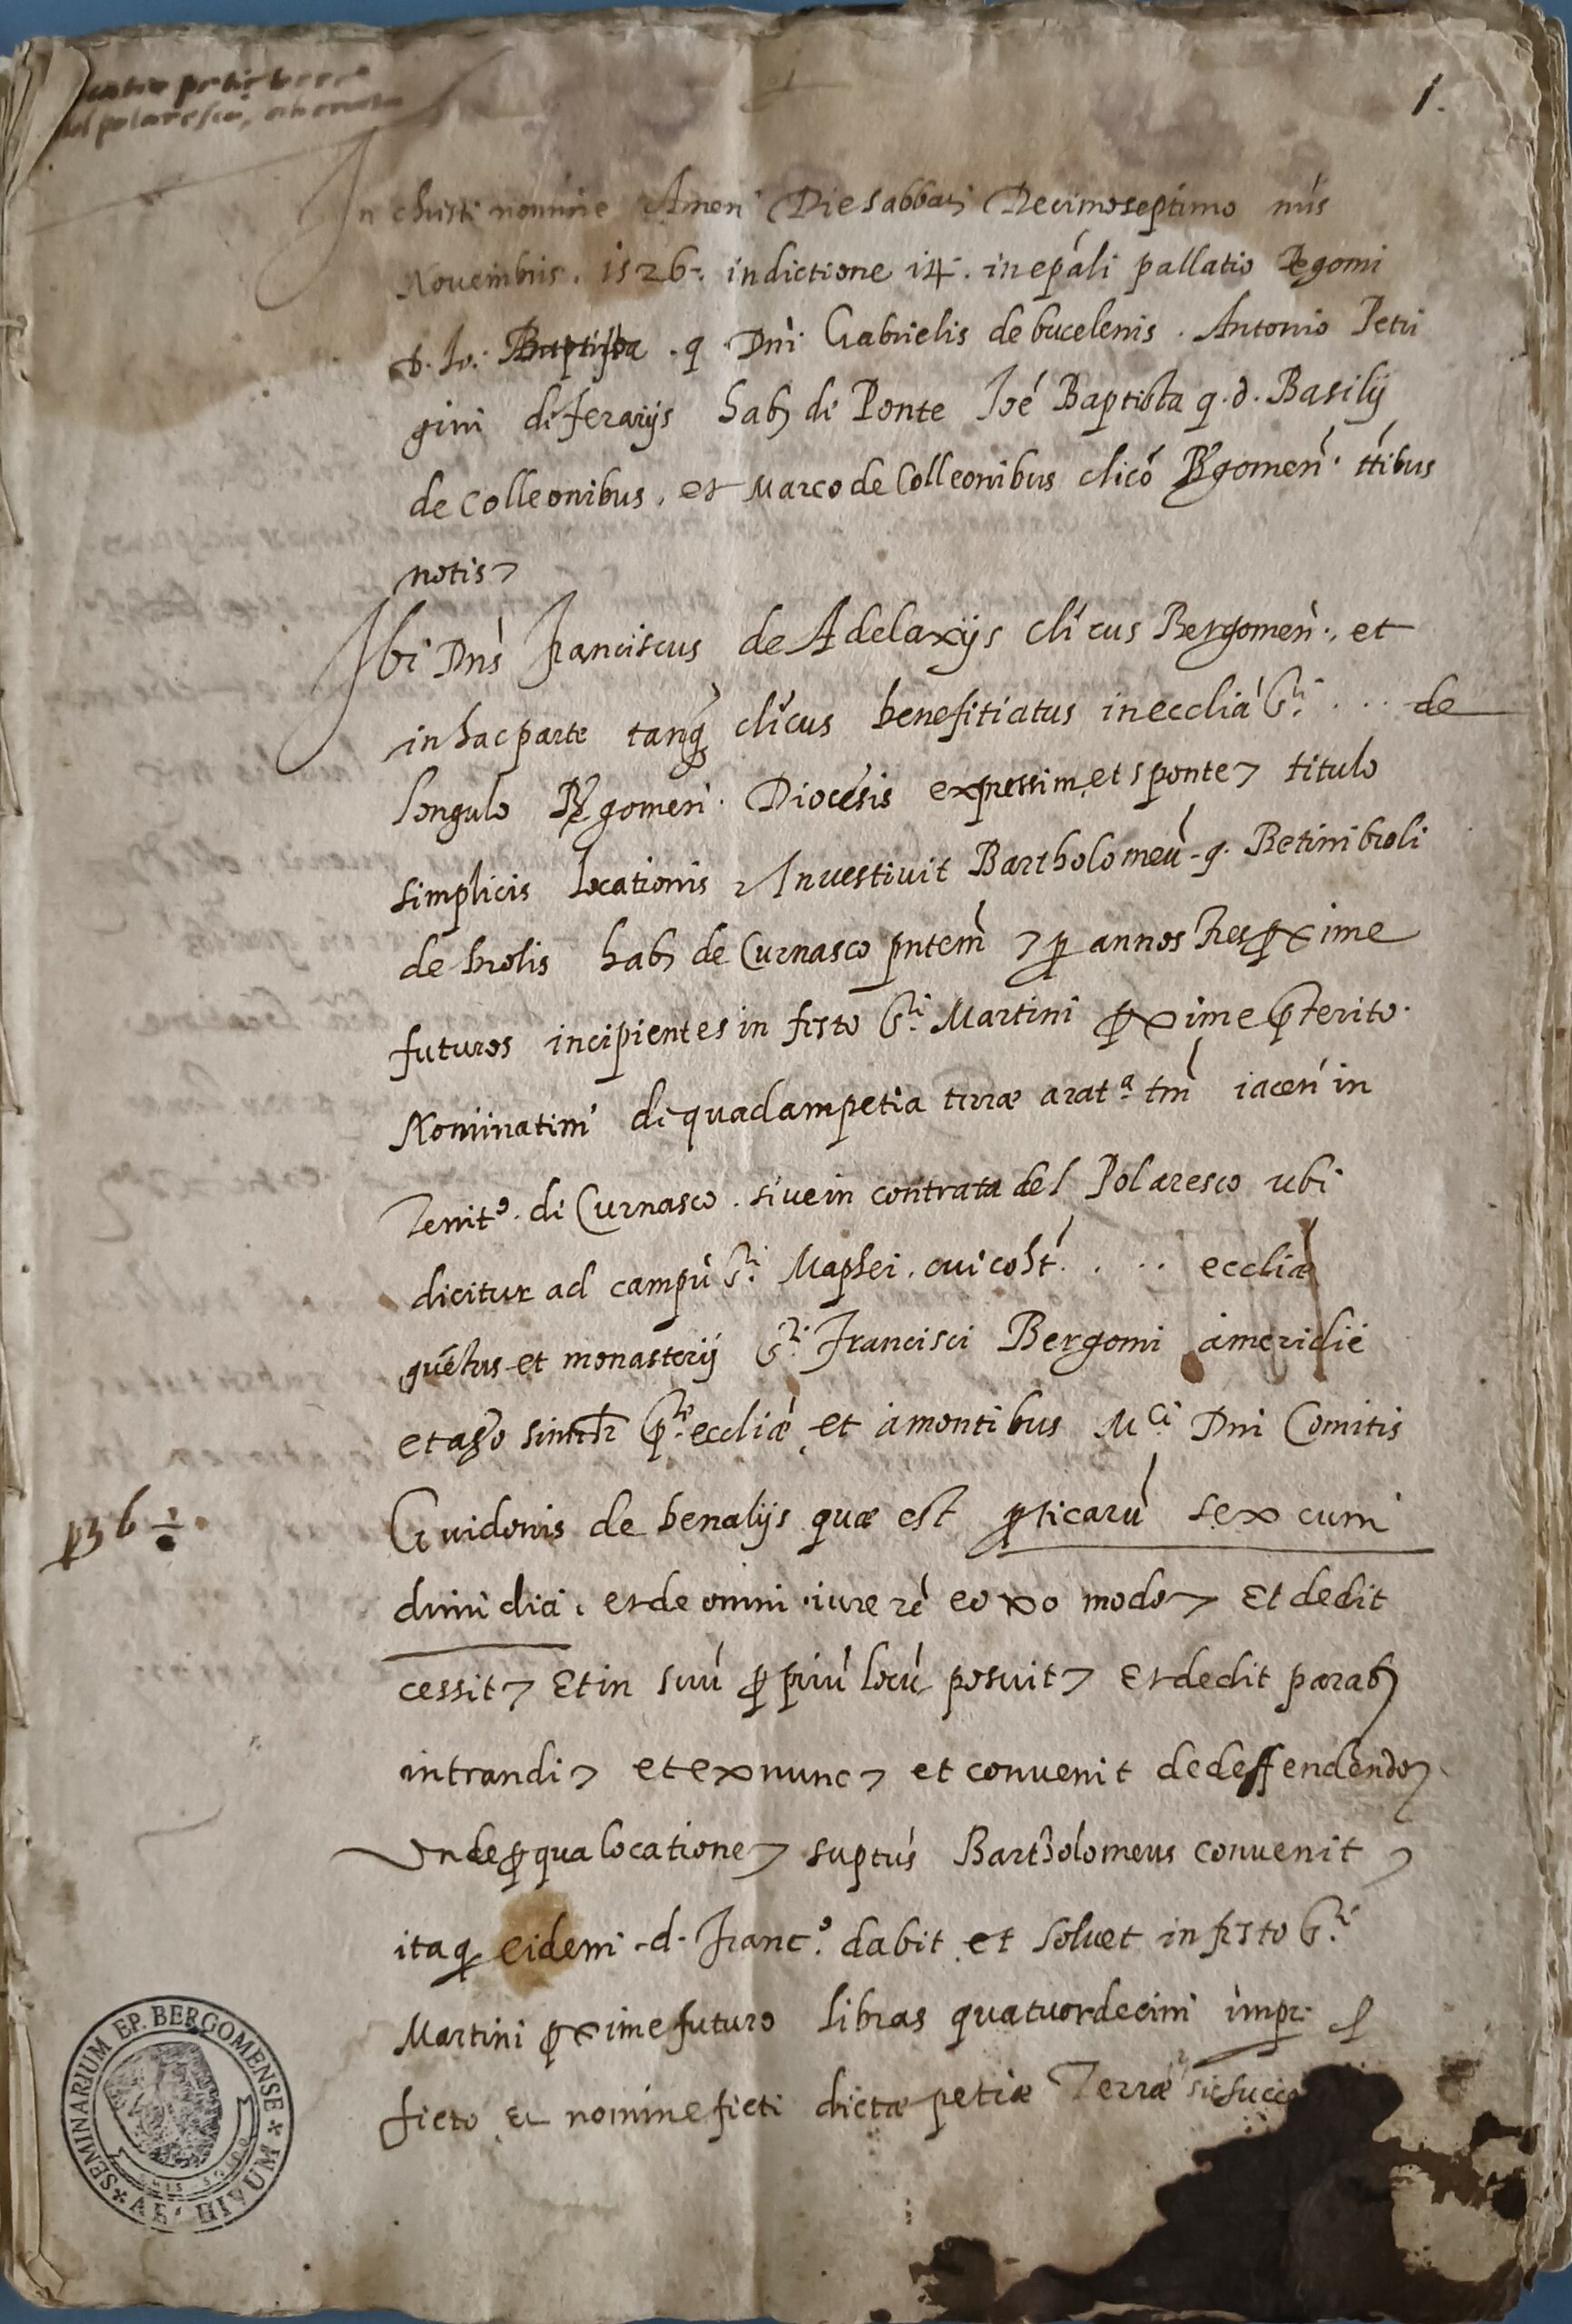 1.
In christi nomine Amen Die sabbati Decimoseptimo mús
Novembris. 1526. indictione 14. in epáli pallatio Pegomi
d. Jo: Baptista. q Dni Gabrielis de bucelenis. Antonio Petri
gini de ferarijs hab de Ponte Joé Baptista q. d. Basilij
de Colleonibus. et Marco de Colleonibus clicó Bgomen. ttibus
notis
Ibi Dns Franciscus de Adelaxijs clicus Bergomen., et
in hac parte tanq clicus benefitiatus in ecclia Sti . . . de
Longulo Bgomen. Diocesis expressim et sponte titulo
simplicis locationis Investivit Bartholomeu q. Betini broli
de brolis hab de Curnasco pntem p annos tres pxime
futuros incipientes in festo Sti Martini pxime pterito.
Nominatim de quadam petia terræ arata tm iacen in
Territo. de Curnasco. sive in contrata del Polaresco ubi
dicitur ad campu Sti Maphei. cui coht . . . . ecclia
et monasterij Sti Francisci Bergomi a meridie
et a sero simltr pte eccliæ et a montibus Mci Dni Comitis
Guidonis de benalijs quæ est pticaru sex cum
p3 6 ÷
dimidia. et de omni iure rè eo xo modo Et dedit
cessit Et in suu ppriu locu posuit Et dedit parab
intrandi et ex nunc et convenit de deffendendo
Unde p qua locatione suptus Bartholomeus convenit
ita q eidem d. Franco. dabit et solvet in festo Sti
Martini pxime futuro libras quatuordecim impr. p
ficto et nomine ficti dictæ petiæ Terræ
SEMINARIUM EP. BERGOMENSE
ARCHIVUM